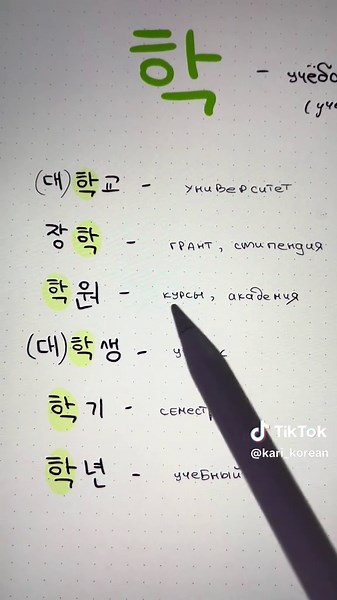 학 -
(대)학교 - университет
장학 - грант, стипендия
학원 - курсы, академия
(대)학생 -
학기 -
학년 - учебный
TikTok
@kari_korean